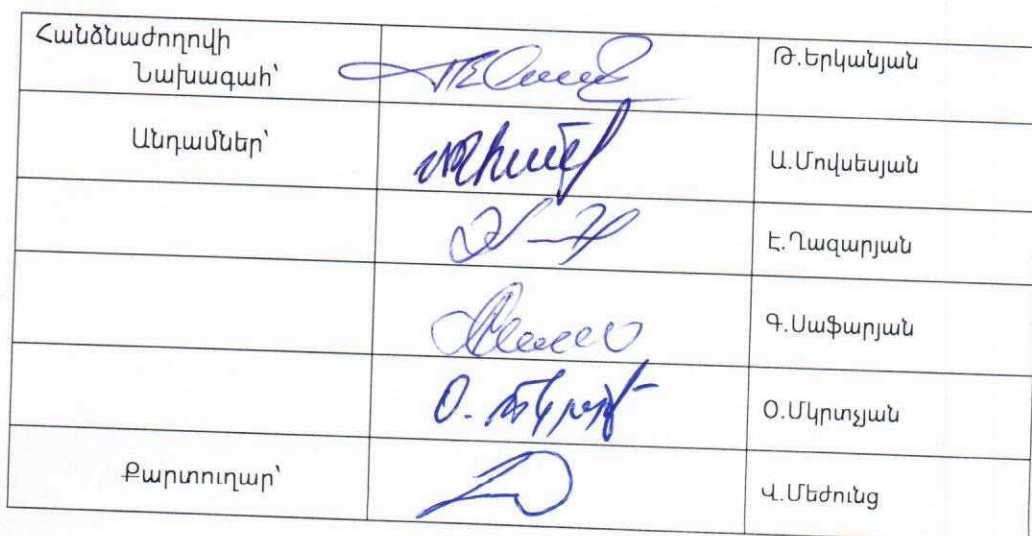 Հանձնաժողովի
Նախագահ՝
Թ.Երկանյան
Անդամներ՝
Ա.Մովսեսյան
Է.Ղազարյան
Գ.Սաֆարյան
Օ.Մկրտչյան
Քարտուղար՝
Վ.Մեժունց